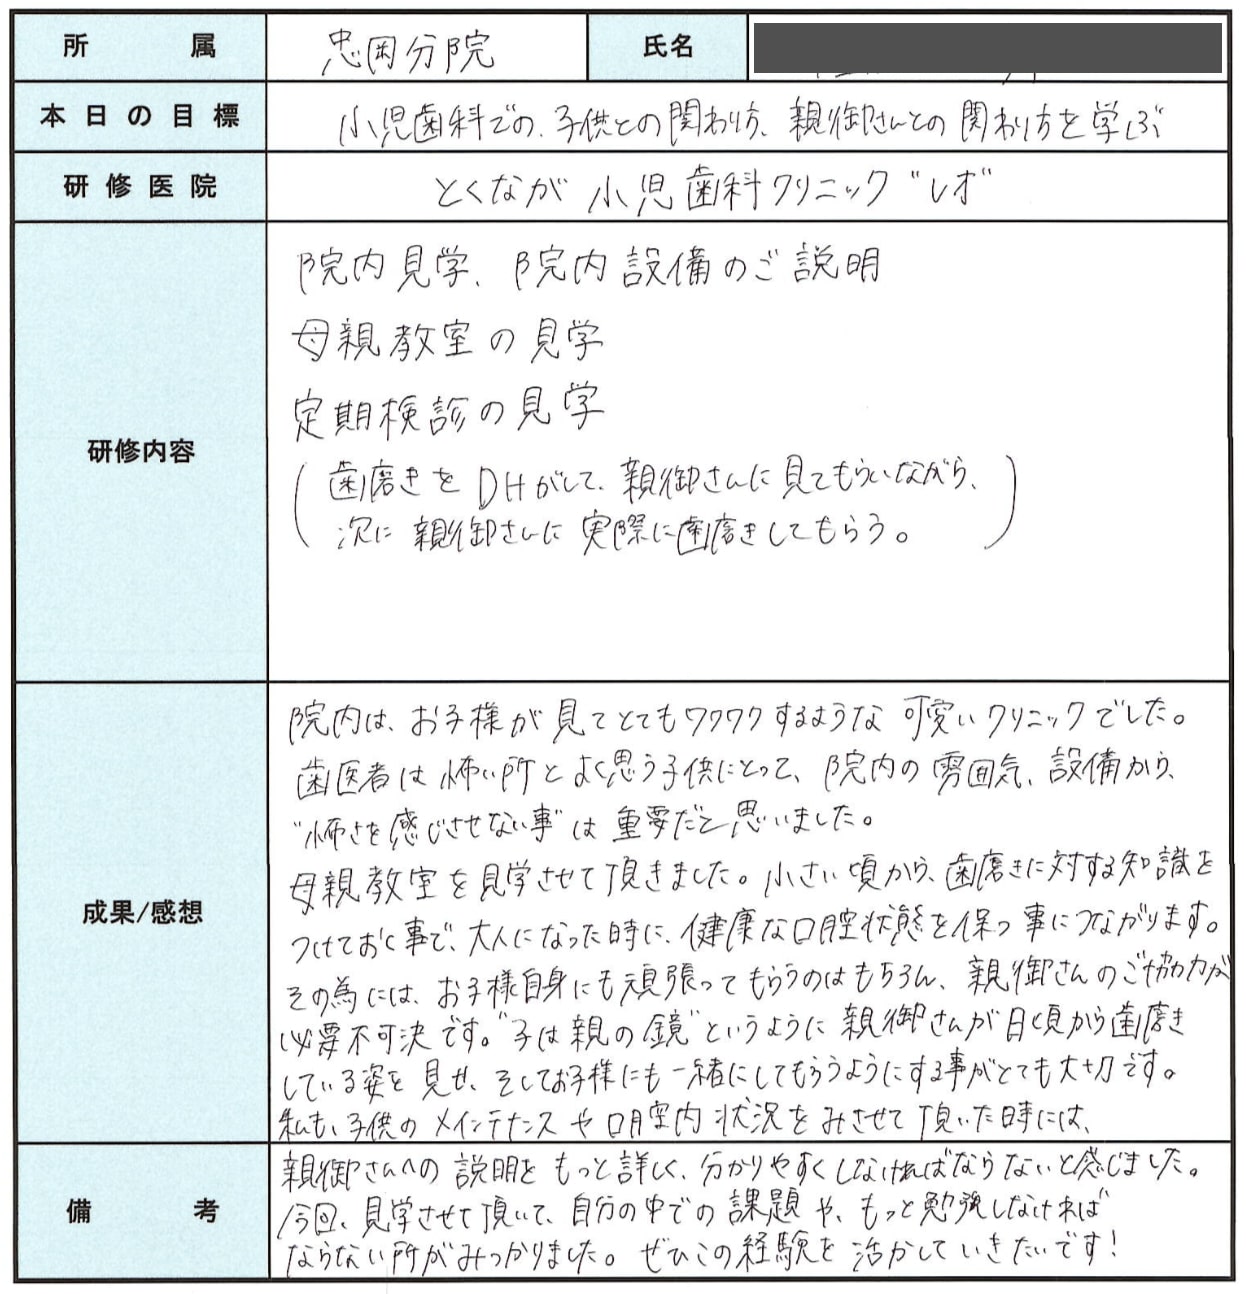 所属 忠岡分院 氏名
本日の目標 小児歯科での、子供との関わり方、親御さんとの関わり方を学ぶ
研修医院 とくなが小児歯科クリニック"レオ"
研修内容
院内見学、院内設備のご説明
母親教室の見学
定期検診の見学
(歯磨きをDHがして、親御さんに見てもらいながら、
次に親御さんに実際に歯磨きしてもらう。)
成果/感想
院内は、お子様が見てとてもワクワクするような可愛いクリニックでした。
歯医者は怖い所とよく思う子供にとって、院内の雰囲気、設備から、
"怖さを感じさせない事"は重要だと思いました。
母親教室を見学させて頂きました。小さい頃から、歯磨きに対する知識を
つけておく事で、大人になった時に、健康な口腔状態を保つ事につながります。
その為には、お子様自身にも頑張ってもらうのはもちろん、親御さんのご協力が
必要不可決です。"子は親の鏡"というように親御さんが日頃から歯磨き
している姿を見せ、そしてお子様にも一緒にしてもらうようにする事がとても大切です。
私も、子供のメインテナンスや口腔内状況をみさせて頂いた時には、
備考
親御さんへの説明をもっと詳しく、分かりやすくしなければならないと感じました。
今回、見学させて頂いて、自分の中での課題や、もっと勉強しなければ
ならない所がみつかりました。ぜひこの経験を活かしていきたいです!